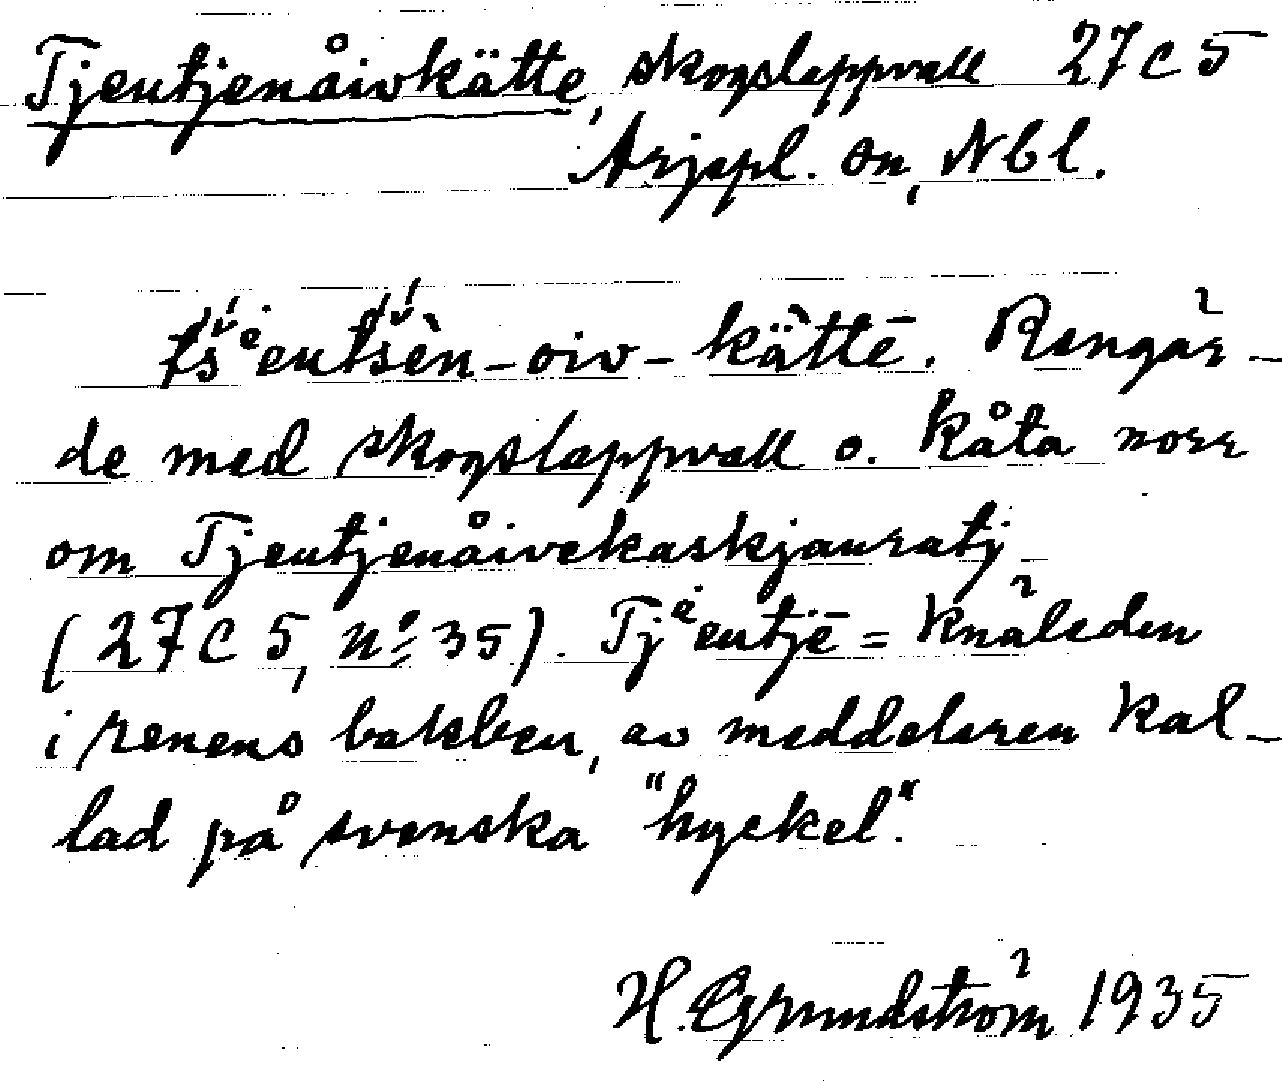 Tjeutjenåivkätte, skogslappvall 27 C 5
Arjepl. sn, Nbl.
tśᵉeutśèn-oiv-kä̀ttē. Rengär-
de med skogslappvall o. kåta norr
om Tjeutjenåivekaskjauratj
(27 C 5, nº 35). Tjᵉeutjē = knäleden
i renens bakben, av meddelaren kal-
lad på svenska "hyckel".
H. Grundström 1935